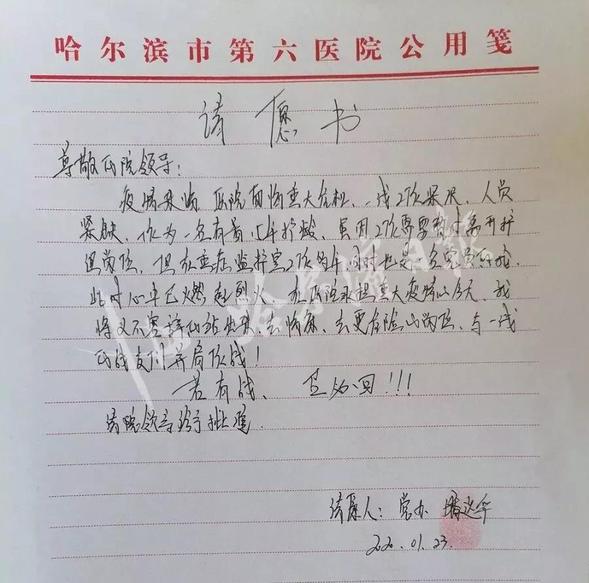 哈尔滨市第六医院公用笺
请愿书
尊敬的院领导:
疫情来临 医院面临重大危机,一线工作紧张,人员
紧缺,作为一名有着 年护龄、虽因工作需要暂时离开护
理岗位,但在重症监护室工作多年,同时也是
此时心早已燃起烈火,在医院承担重大疫情的今天,我
将义不容辞的站出来,去临床,去更危险的岗位,与一线
的战友们并肩作战!
若有战、 召必回!!!
请院领导给予批准
请愿人:党办
2020.01.23.
哈尔滨日报